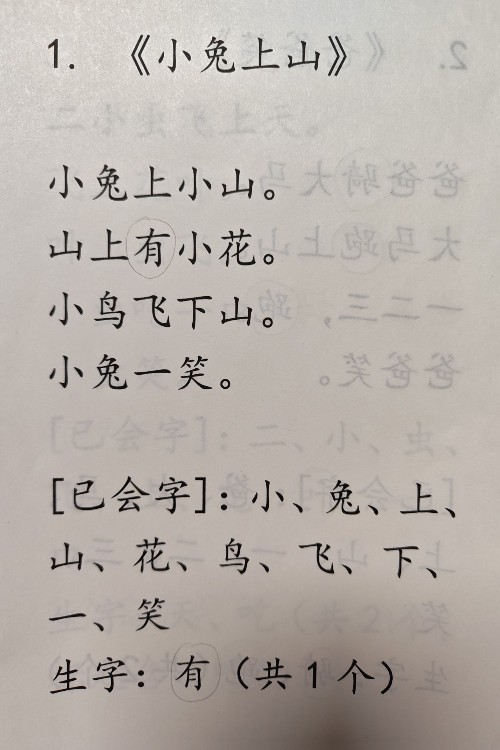 1. 《小兔上山》
小兔上小山。
山上有小花。
小鸟飞下山。
小兔一笑。
[已会字]：小、兔、上、
山、花、鸟、飞、下、
一、笑
生字：有（共1个）